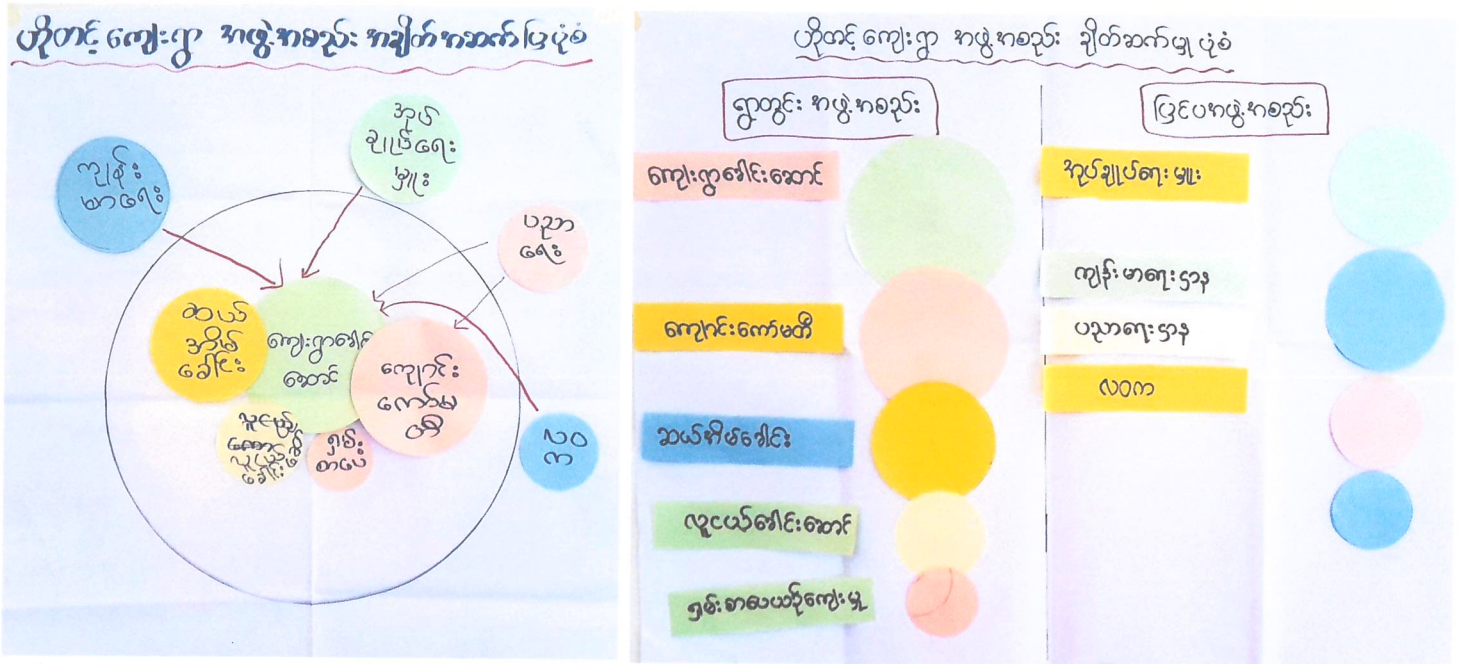 ဟိုတင့်ကျေးရွာ အဖွဲ့အစည်း အချိတ်အဆက်ပြပုံစံ
အုပ်
ချုပ်ရေး
မှူး
ကျန်း
မာရေး
ပညာ
ရေး
ဆယ်
အိမ်
ခေါင်း
ကျေးရွာခေါင်း
ဆောင်
ကျောင်း
ကော်မ
တီ
ရှမ်း
စာပေ
လဝ
က
ဟိုတင့်ကျေးရွာ အဖွဲ့အစည်း ချိတ်ဆက်မှုပုံစံ
ရွာတွင်း အဖွဲ့အစည်း
ကျေးရွာခေါင်းဆောင်
ကျောင်းကော်မတီ
ဆယ်အိမ်ခေါင်း
လူငယ်ခေါင်းဆောင်
ရှမ်းစာပေယဉ်ကျေးမှု
ပြင်ပအဖွဲ့အစည်း
အုပ်ချုပ်ရေးမှူး
ကျန်းမာရေးဌာန
ပညာရေးဌာန
လဝက